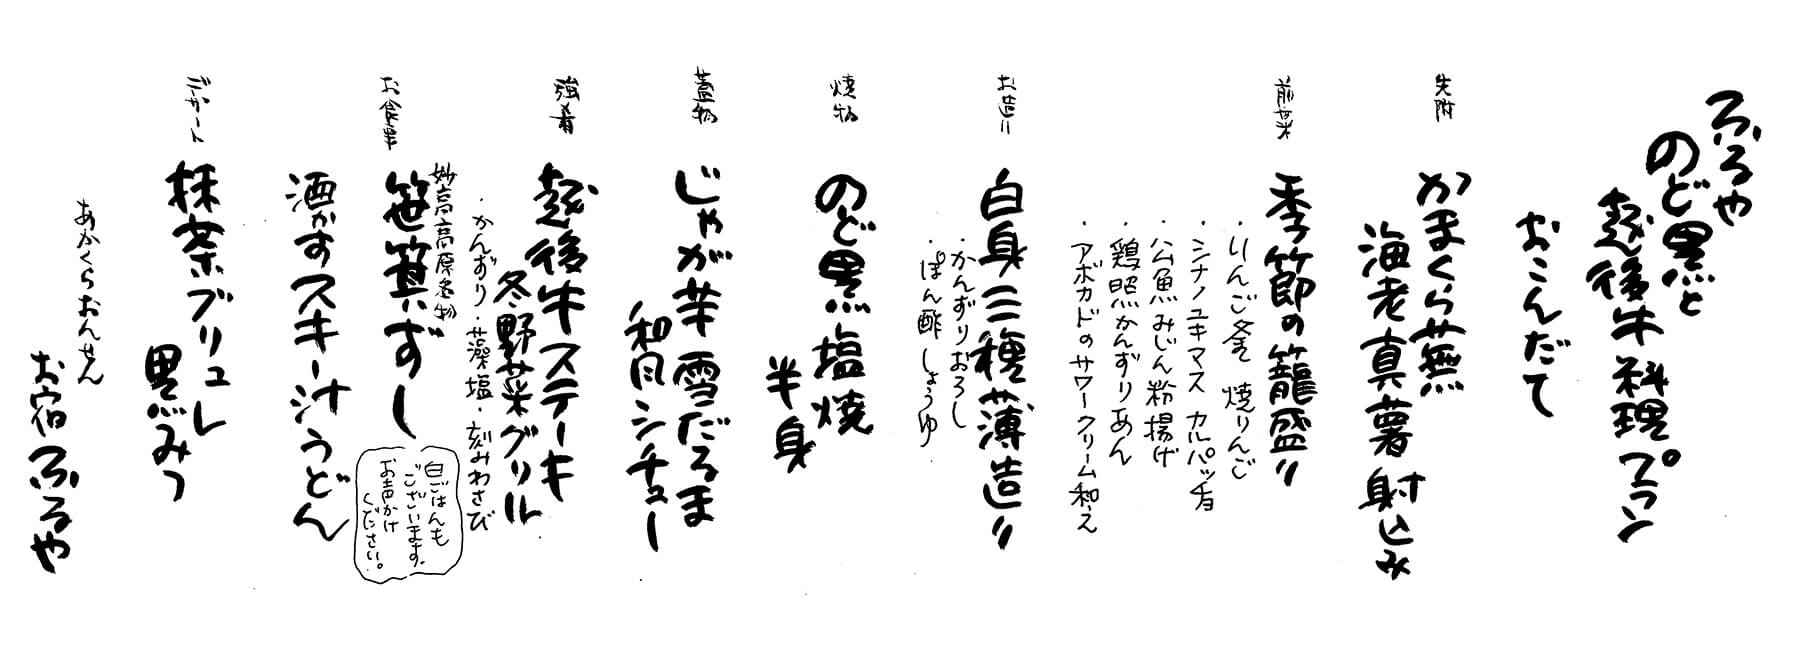 ふるや
のど黒と
越後牛料理プラン
おこんだて
先附
かまくら蕪
海老真薯射込み
前菜
季節の籠盛り
・りんご釜 焼りんご
・シナノユキマス カルパッチョ
・公魚みじん粉揚げ
・鶏照かんずりあん
・アボカドのサワークリーム和え
お造り
白身三種薄造り
・かんずりおろし
・ぽん酢しょうゆ
焼物
のど黒塩焼
半身
蓋物
じゃが芋雪だるま
和風シチュー
強肴
越後牛ステーキ
冬野菜グリル
・かんずり・藻塩・刻みわさび
お食事
妙高高原名物
笹箕ずし
白ごはんも
ございます。
お声かけ
ください。
酒かすスキー汁うどん
デザート
抹茶ブリュレ
黒みつ
あかくらおんせん
お宿ふるや